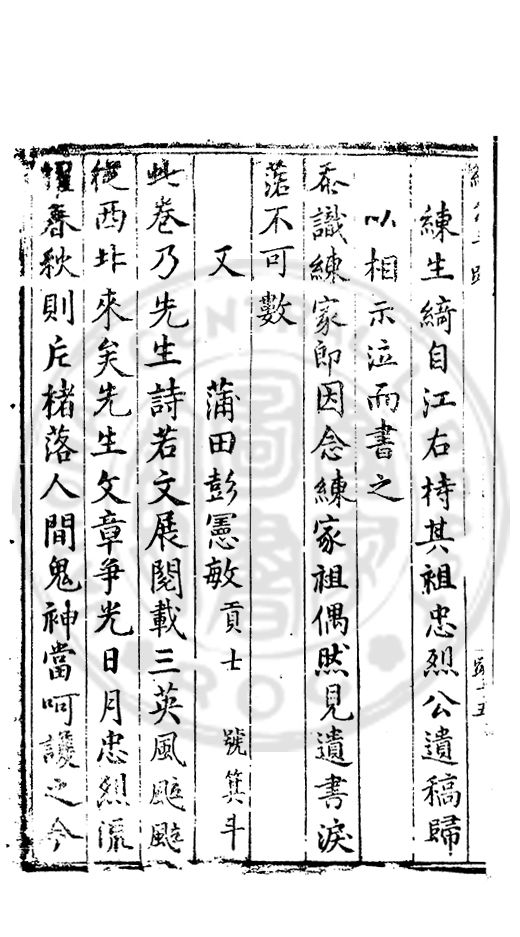 練生綺自江右持其祖忠烈公遺稿歸
以相示泣而書之
忝識練家卽因念練家祖偶然見遺書淚
落不可數
又 蒲田彭憲敏 貢士 號箕斗
此卷乃先生詩若文展閱載三英風颰颰
從西北來矣先生文章爭光日月忠烈流
耀春秋則片楮落人間鬼神當呵護之今